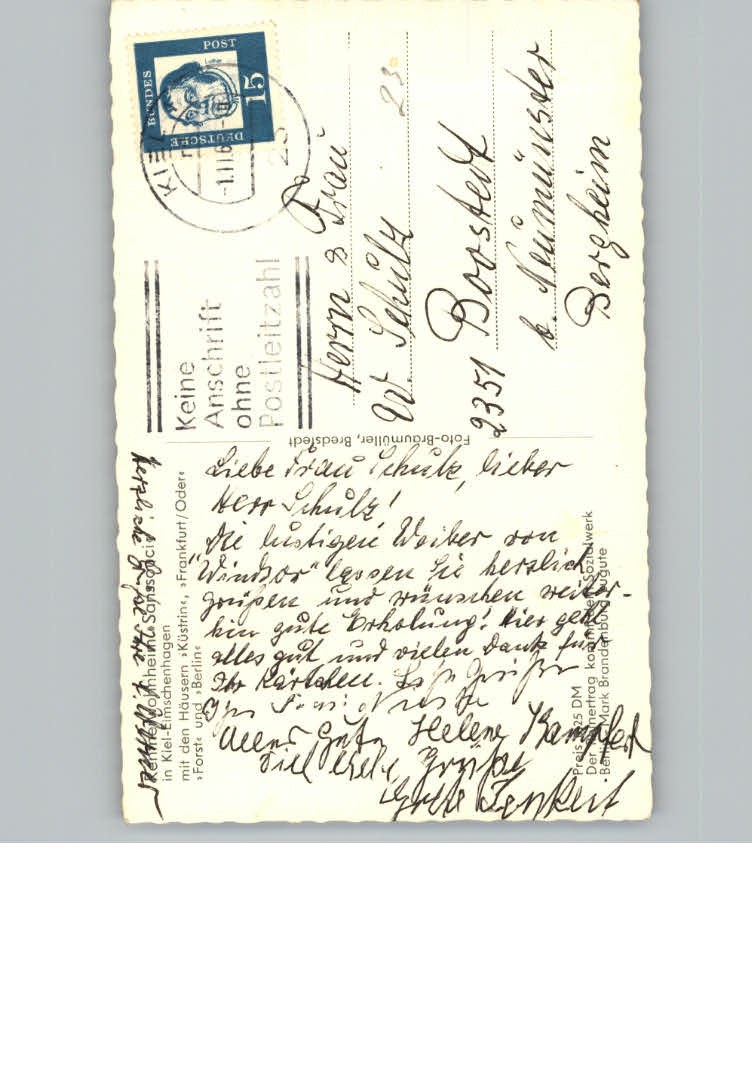 DEUTSCHE
BUNDES
POST
15
Luther
KIEL
-1.11.6
23
Keine
Anschrift
ohne
Postleitzahl
23
Herrn & Frau
W. Schulz
2351 Boostedt
b. Neumünster
Bergheim
Foto-Braumüller, Bredstedt
Liebe Frau Schulz, lieber
Herr Schulz!
Die lustigen Weiber von
"Windsor" lassen Sie herzlich
grüßen und wünschen weiter-
hin gute Erholung! Hier geht
alles gut und vielen Dank für
Ihr Kärtchen.
Alles Gute Helene Kampfert
Viel liebe Grüße
Grete
Herzliche Grüße
»Sanssouci«
in Kiel-Elmschenhagen
mit den Häusern »Küstrin«, »Frankfurt/Oder«
»Forst« und »Berlin«
Preis 0,25 DM
Der kommt Sozialwerk
Berlin-Mark Brandenburg zugute